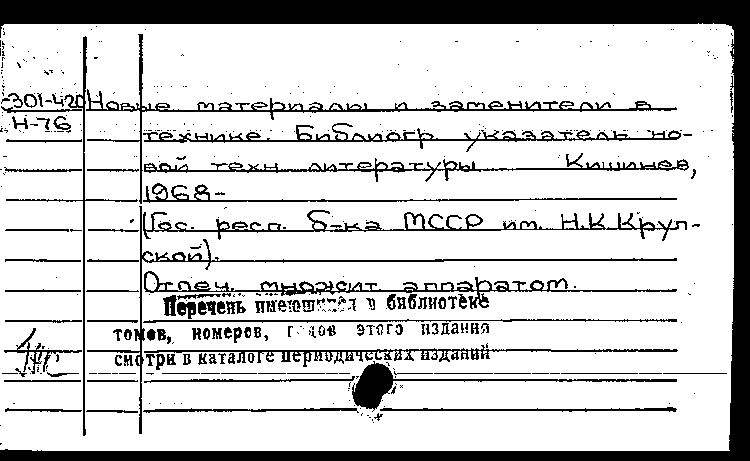 301-420 Новые материалы и заменители в
Н-76 технике. Библиогр. указатель но-
вой техн литературы Кишинев,
1968-
(Гос. респ. б-ка МССР им. Н.К Круп-
ской).
Отпеч. множит аппаратом.
Перечень имеющихся в библиотеке
томов, номеров, годов этого издания
смотри в каталоге периодических изданий